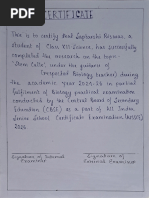 CERTIFICATE
This is to certify that Saptarshi Biswas, a
student of Class XII Science, has successfully
completed the research on the topic
"Stem Cells", under the guidance of
(respected Biology teacher) during
the academic year 2025-26 in partial
fulfilment of Biology practical examination
conducted by the Central Board of Secondary
Education (CBSE) as a part of All India
Senior School Certificate Examination
2026
Signature of Internal
Examiner
Signature of
External Examiner